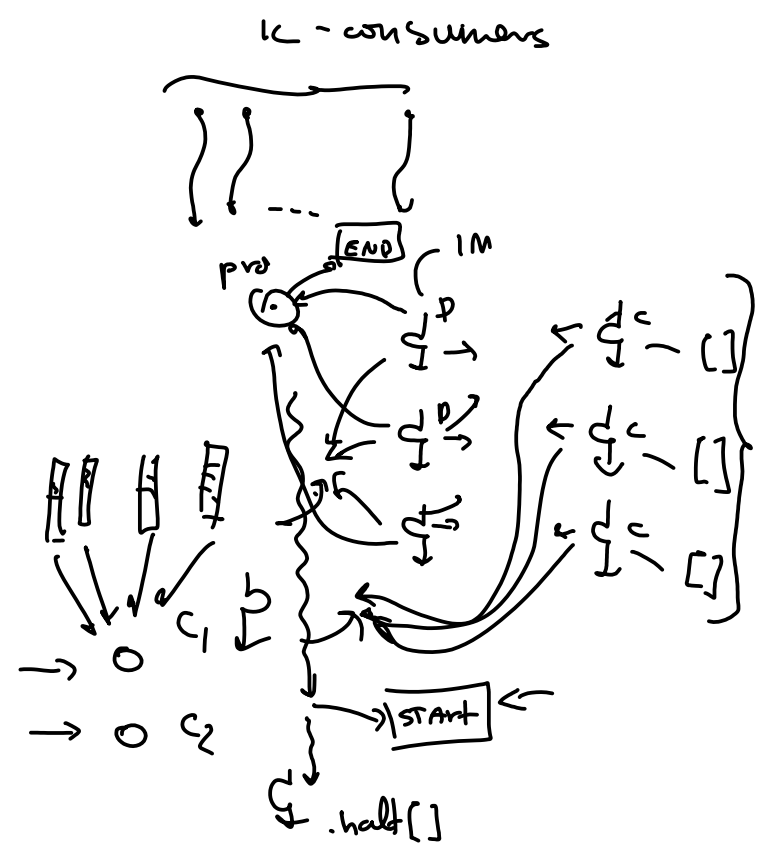 K - consumers
END
1M
pro
P
C
[]
P
C
[]
C
[]
C1
C2
START
.halt[]